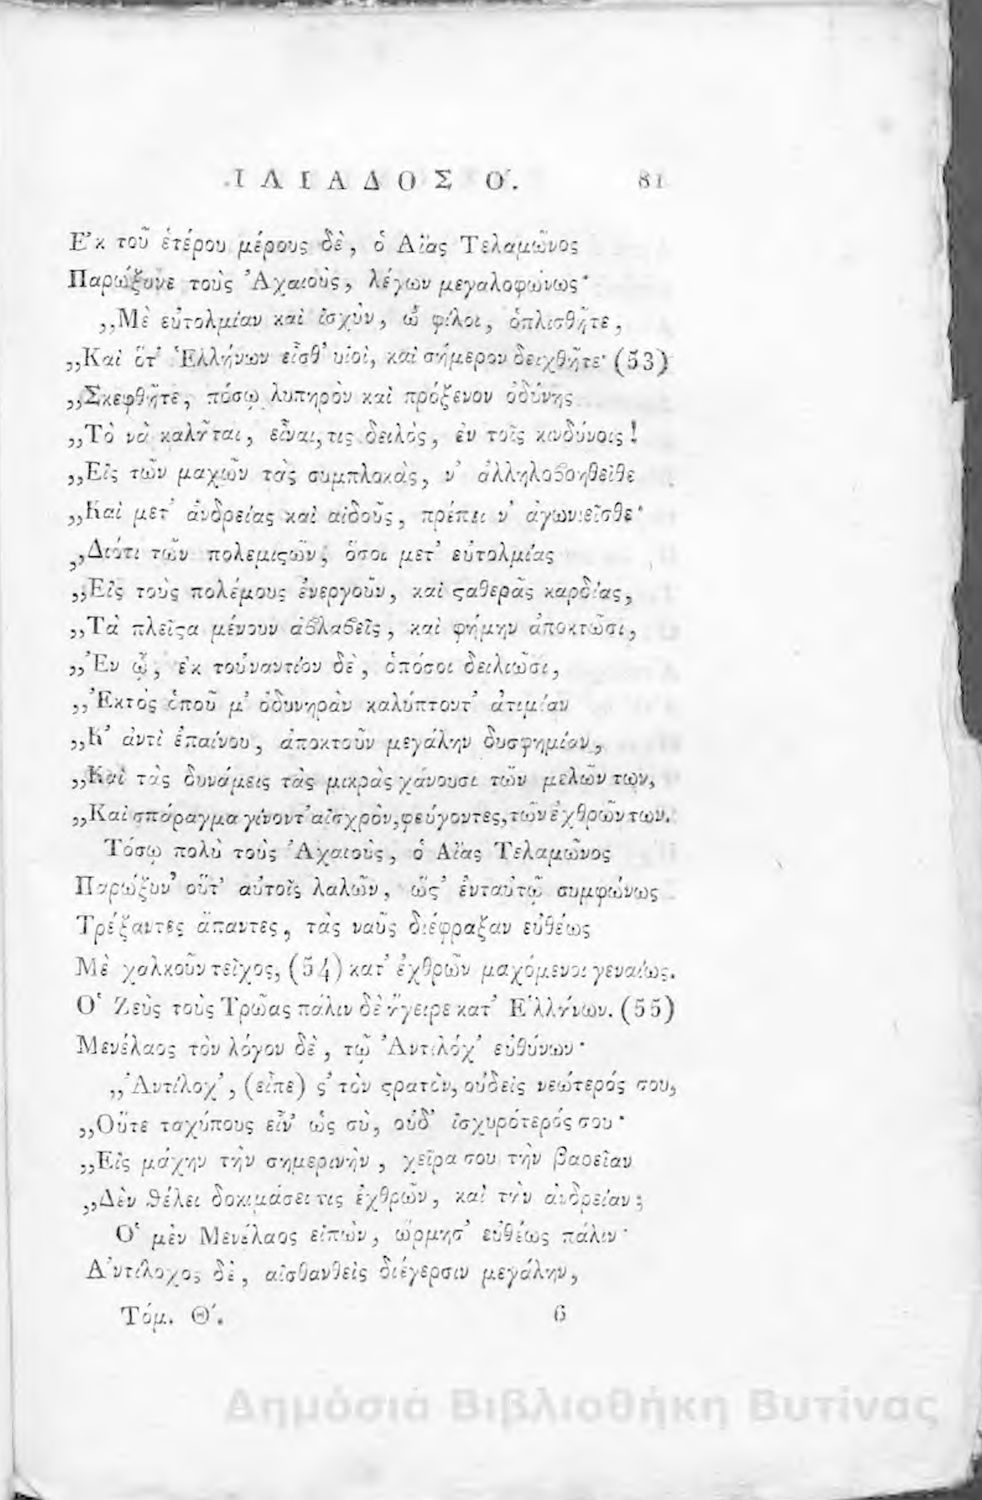 ΙΛΙΑΔΟΣ Ο΄. 81
Ἐκ τοῦ ἑτέρου μέρους δὲ, ὁ Αἴας Τελαμῶνος
Παρώξυνε τοὺς Ἀχαιοὺς, λέγων μεγαλοφώνως·
„Μὲ εὐτολμίαν καὶ ἰσχὺν, ὦ φίλοι, ὁπλισθῆτε,
„Καὶ ὅτ' Ἑλλήνων εἶσθ' υἱοὶ, καὶ σήμερον δειχθῆτε· (53)
„Σκεφθῆτε, πόσῳ λυπηρὸν καὶ πρόξενον ὀδύνης
„Τὸ νὰ καλῆται, εἶναι, τις δειλὸς, ἐν τοῖς κινδύνοις!
„Εἰς τῶν μαχῶν τὰς συμπλοκὰς, ν' ἀλληλοβοηθεῖσθε
„Καὶ μετ' ἀνδρείας καὶ αἰδοῦς, πρέπει ν' ἀγωνιεῖσθε·
„Διότι τῶν πολεμιϛῶν, ὅσοι μετ' εὐτολμίας
„Εἰς τοὺς πολέμους ἐνεργοῦν, καὶ ϛαθερᾶς καρδίας,
„Τὰ πλεῖϛα μένουν ἀβλαβεῖς, καὶ φήμην ἀποκτῶσι,
„Ἐν ᾧ, ἐκ τοὐναντίον δὲ, ὁπόσοι δειλιῶσι,
„Ἐκτὸς ὁποῦ μ' ὀδυνηρὰν καλύπτοντ' ἀτιμίαν
„Κ' ἀντὶ ἐπαίνου, ἀποκτοῦν μεγάλην δυσφημίαν,
„Καὶ τὰς δυνάμεις τὰς μικρὰς χάνουσι τῶν μελῶν των,
„Καὶ σπάραγμα γίνοντ' αἰσχρὸν, φεύγοντες, τῶν ἐχθρῶν των.
Τόσῳ πολὺ τοὺς Ἀχαιοὺς, ὁ Αἴας Τελαμῶνος
Παρώξυν' οὕτ' αὐτοῖς λαλῶν, ὥϛ' ἐνταυτῷ συμφώνως
Τρέξαντες ἅπαντες, τὰς ναῦς διέφραξαν εὐθέως
Μὲ χαλκοῦν τεῖχος, (54) κατ' ἐχθρῶν μαχόμενοι γεναίως.
Ὁ Ζεὺς τοὺς Τρῶας πάλιν δὲ ἤγειρε κατ' Ἑλλήνων. (55)
Μενέλαος τὸν λόγον δὲ, τῷ Ἀντιλόχ' εὐθύνων·
„Ἀντίλοχ', (εἶπε) ϛ' τὸν ϛρατὸν, οὐδεὶς νεώτερός σου,
„Οὔτε ταχύπους εἶν' ὡς σὺ, οὐδ' ἰσχυρότερός σου·
„Εἰς μάχην τὴν σημερινὴν, χεῖρα σου τὴν βαρεῖαν
„Δὲν θέλει δοκιμάσει τις ἐχθρῶν, καὶ τὴν ἀνδρείαν;
Ὁ μὲν Μενέλαος εἰπὼν, ὥρμησ' εὐθέως πάλιν·
Ἀντίλοχος δὲ, αἰσθανθεὶς διέγερσιν μεγάλην,
Τόμ. Θ΄. 6
Δημόσια Βιβλιοθήκη Βυτίνας